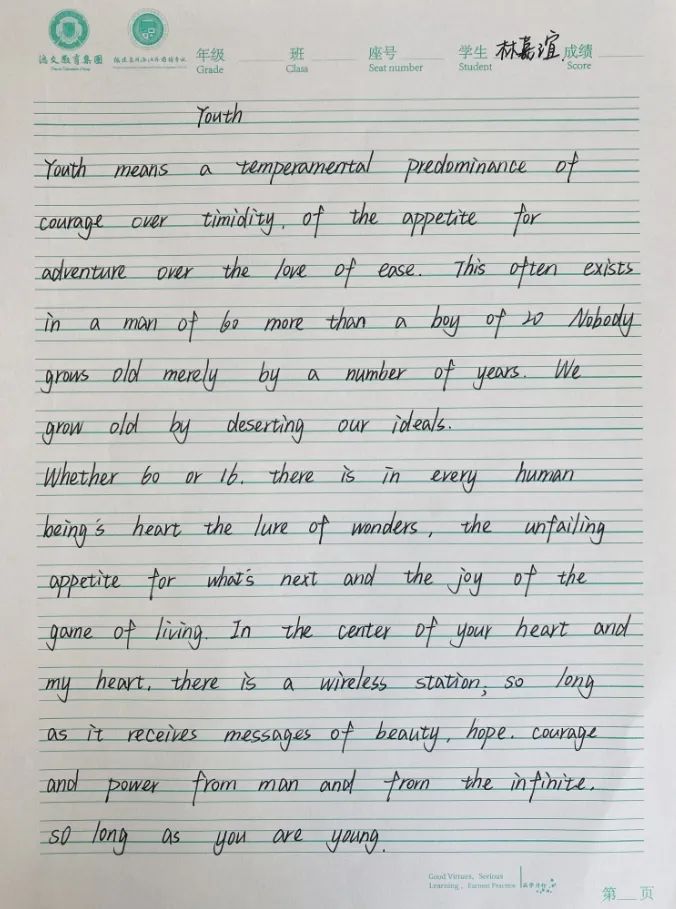 鴻文教育集團
年级 班 座号 学生 林嘉谊 成绩
Grade Class Seat number Student Score
Youth
Youth means a temperamental predominance of
courage over timidity, of the appetite for
adventure over the love of ease. This often exists
in a man of 60 more than a boy of 20 Nobody
grows old merely by a number of years. We
grow old by deserting our ideals.
Whether 60 or 16. there is in every human
being's heart the lure of wonders, the unfailing
appetite for what's next and the joy of the
game of living. In the center of your heart and
my heart. there is a wireless station; so long
as it receives messages of beauty, hope. courage
and power from man and from the infinite.
so long as you are young.
Good Virtues, Serious
Learning, Earnest Practice
第 页